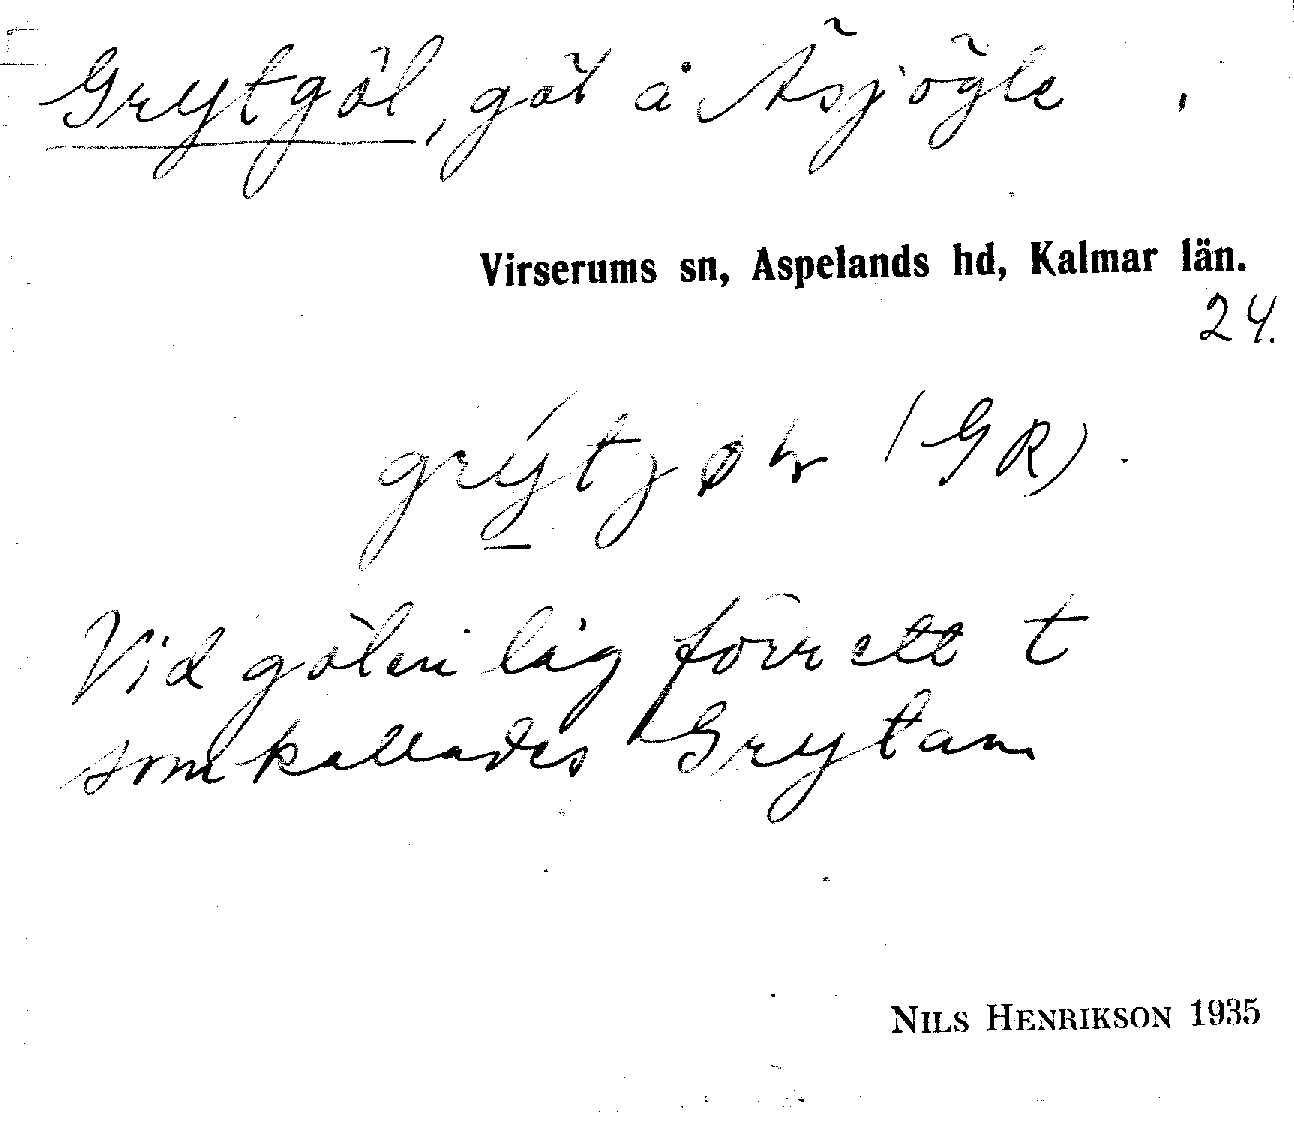 Grytgöl, göl å Åsjögle
Virserums sn, Aspelands hd, Kalmar län.
24.
(GR).
Vid gölen låg förr ett t
som kallades Grytan
NILS HENRIKSON 1935